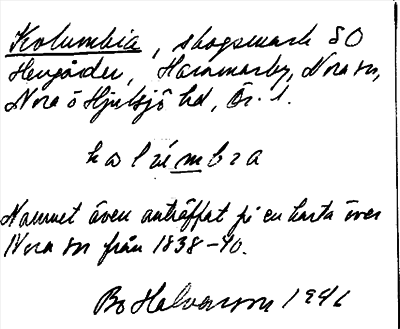 Kolumbia, skogsmark SO
Hengården, Hammarby, Nora sn,
Nora o Hjulsjö hd, Ör. l.
kolúmbia
Namnet även anträffat på en karta över
Nora sn från 1838-40.
Bo Halvarson 1941